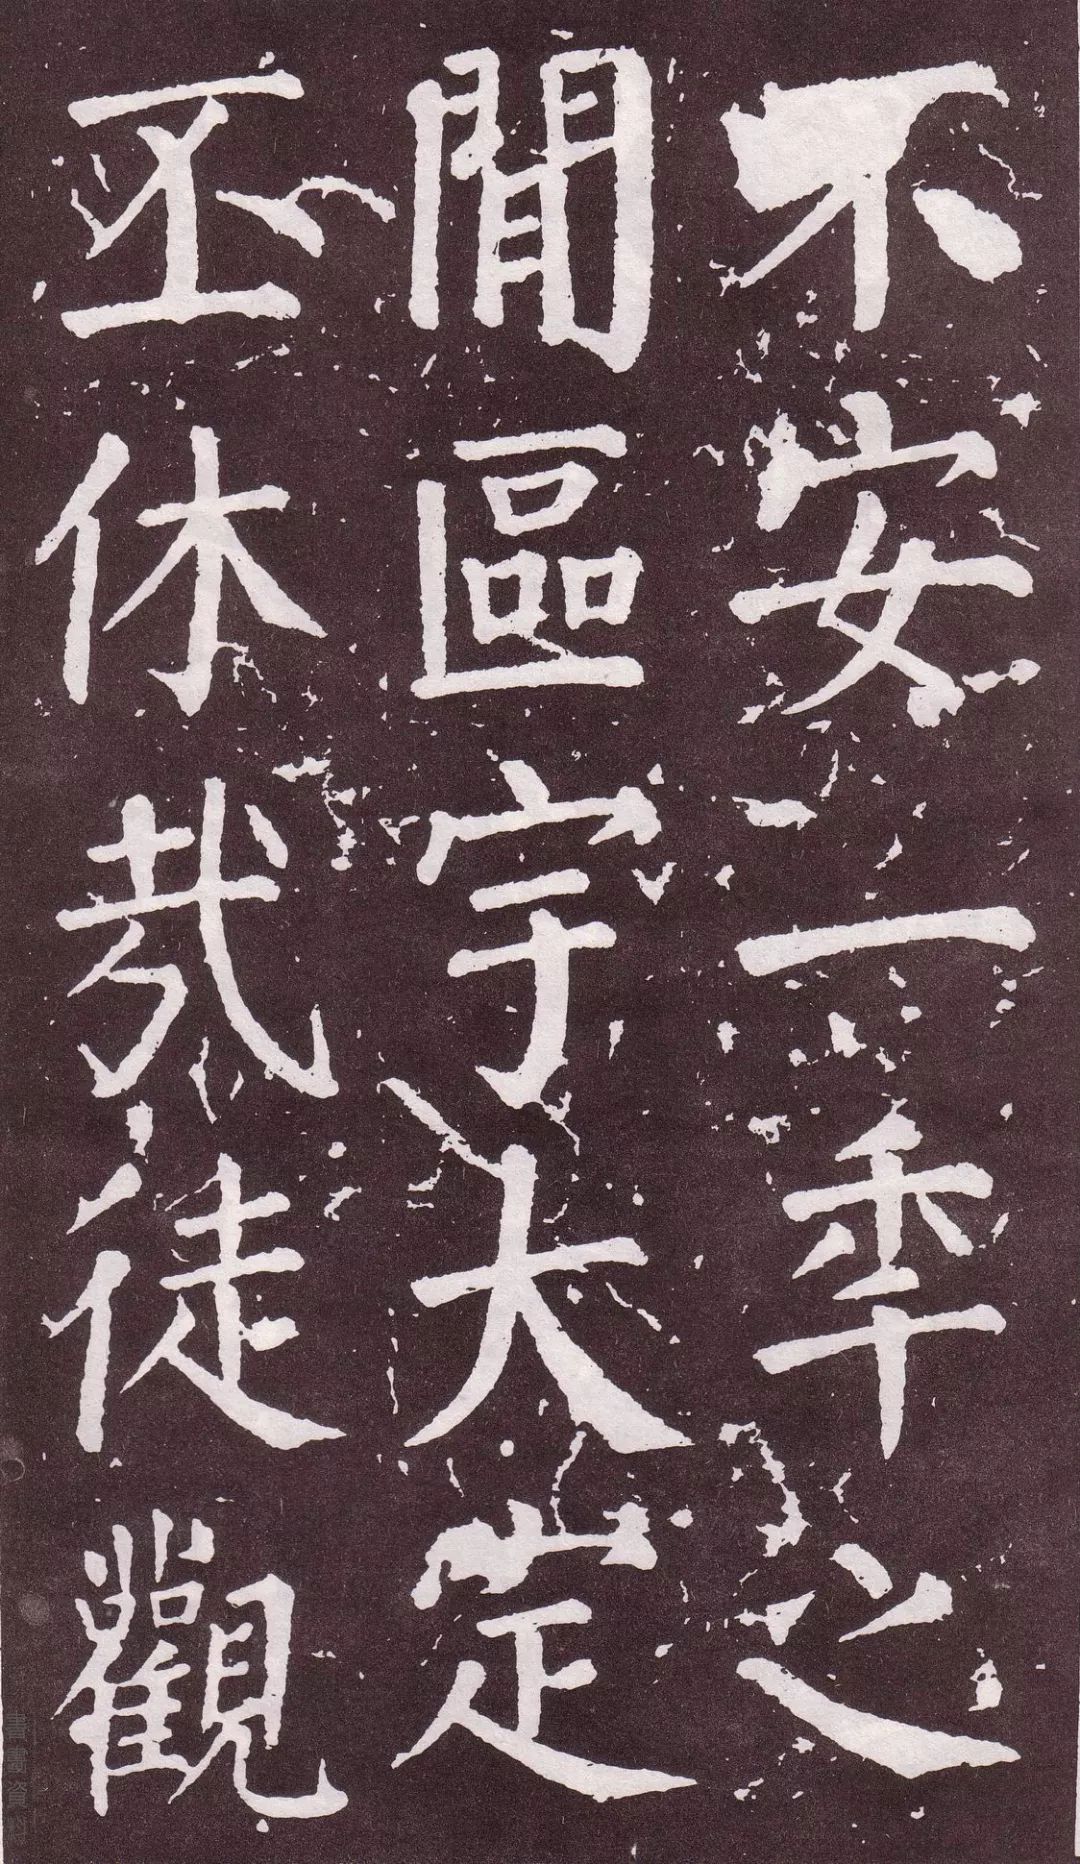 不安一年之
間區宇大定
丕休哉徒觀